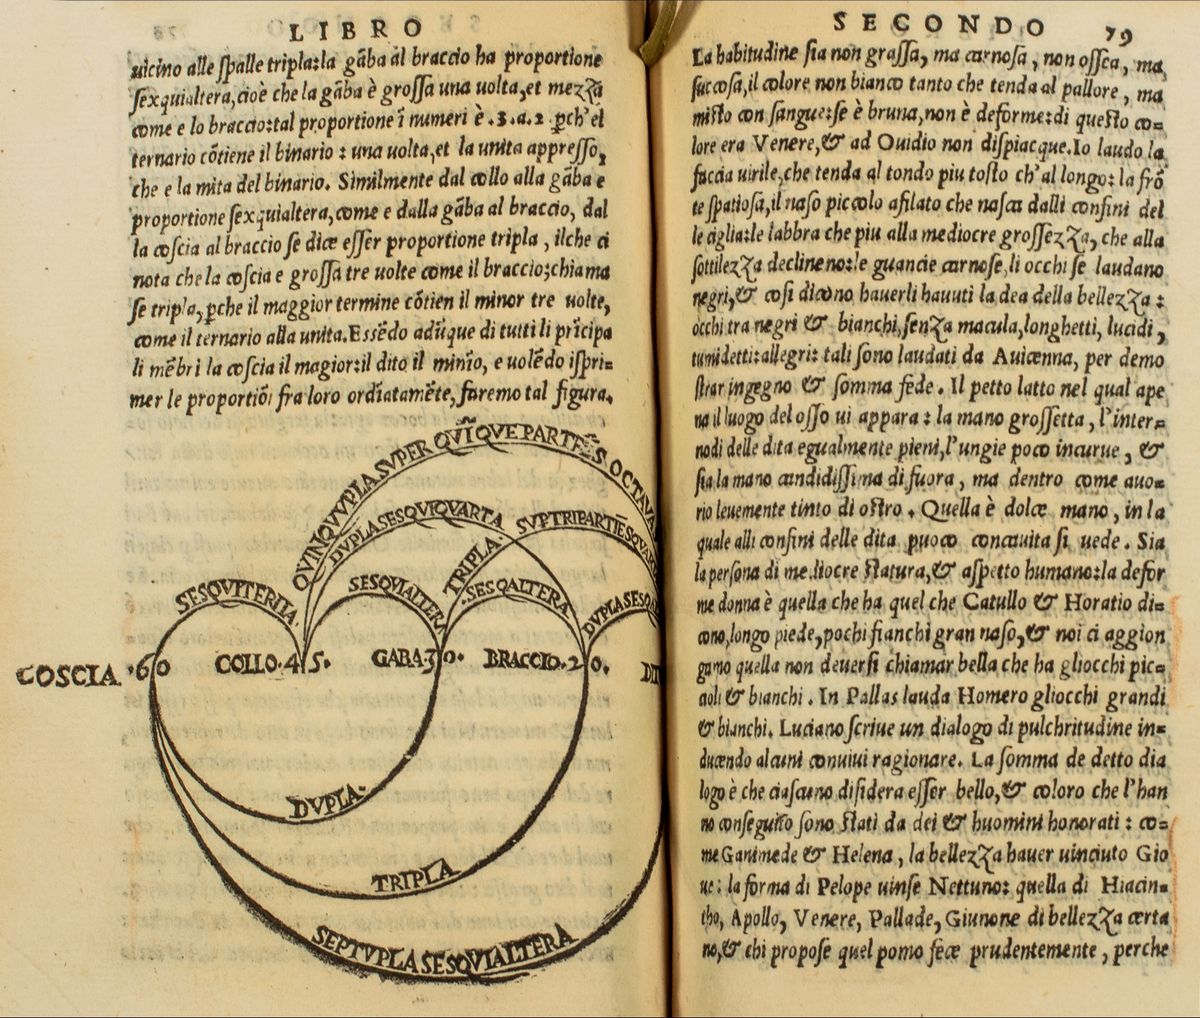 LIBRO
uicino alle spalle tripla:la gãba al braccio ha proportione
sexquialtera,cioè che la gãba è grossa una uolta,et mezza
come e lo braccio:tal proportione ĩ numeri è .3.a.2 ꝑch'el
ternario cõtiene il binario : una uolta,et la unita appresso,
che e la mita del binario. Similmente dal collo alla gãba e
proportione sexquialtera,come e dalla gãba al braccio, dal
la coscia al braccio se dice esser proportione tripla , ilche ci
nota che la coscia e grossa tre uolte come il braccio:chiama
se tripla,ꝑche il maggior termine cõtien il minor tre uolte,
come il ternario alla unita.Essẽdo adũque di tutti li prĩcipa
li mẽbri la coscia il magior:il dito il minĩo, e uolẽdo ispri=
mer le proportiõi fra loro ordĩatamẽte, faremo tal figura.
QVINQVVPLA SVPER QVĨQVE PARTẼS. OCTAVA
DVPLASESQVIQVARTA
SVPTRIPARTIẼSQVAR
TRIPLA.
SESQVITERTIA.
SESQVIALTERA
SESQALTERA
DVPLASESQ
COSCIA. 60 COLLO. 45. GABA. 30. BRACCIO. 20.
DVPLA.
TRIPLA
SEPTVPLASESQVIALTERA
SECONDO 79
La habitudine sia non grassa, ma carnosa , non ossea, ma
succosa,il colore non bianco tanto che tenda al pallore , ma
misto con sangue:se è bruna,non è deforme:di questo co=
lore era Venere,& ad Ouidio non dispiacque.Io laudo la
faccia uirile,che tenda al tondo piu tosto ch'al longo: la frõ
te spatiosa,il naso piccolo afilato che nasca dalli confini del
le ciglia:le labbra che piu alla mediocre grossezza, che alla
sottilezza declineno:le guancie carnose,li occhi se laudano
negri,& cosi dicono hauerli hauuti la dea della bellezza :
occhi tra negri & bianchi,senza macula,longhetti, lucidi ,
tumidetti:allegri: tali sono laudati da Auicenna, per demo
strar ingegno & somma fede . Il petto latto nel qual ape
na il luogo del osso ui appara : la mano grossetta, l'inter=
nodi delle dita egualmente pieni,l'ungie poco incurue , &
sia la mano candidissima di fuora , ma dentro come auo=
rio leuemente tinto di ostro . Quella è dolce mano, in la
quale alli confini delle dita puoco concauita si uede . Sia
la persona di mediocre statura,& aspetto humano:la defor
me donna è quella che ha quel che Catullo & Horatio di=
cono,longo piede,pochi fianchi gran naso,& noi ci aggion
gamo quella non deuersi chiamar bella che ha gliocchi pic=
cioli & bianchi . In Pallas lauda Homero gliocchi grandi
& bianchi. Luciano scriue un dialogo di pulchritudine in=
ducendo alcuni conuiui ragionare. La somma de detto dia
logo è che ciascuno disidera esser bello,& coloro che l'han
no conseguito sono stati da dei & huomini honorati : co=
me Ganimede & Helena , la bellezza hauer uinciuto Gio
ue: la forma di Pelope uinse Nettuno: quella di Hiacin=
tho, Apollo, Venere, Pallade, Giunone di bellezza certa
no,& chi propose quel pomo fece prudentemente , perche